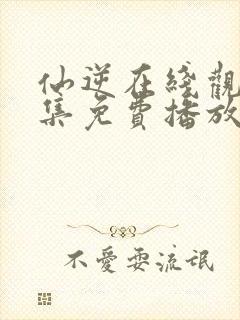 仙逆在綫觀
集免費播放
不愛耍流氓